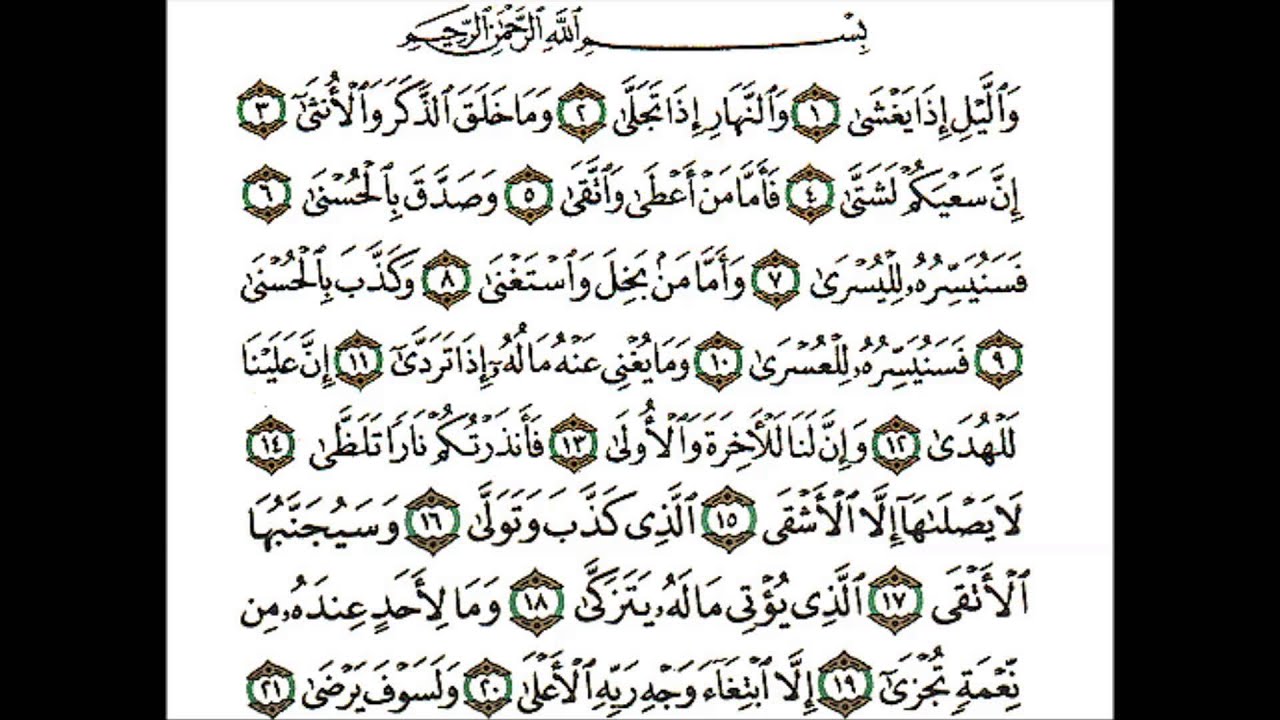 بِسْمِ ٱللَّهِ ٱلرَّحْمَٰنِ ٱلرَّحِيمِ
وَٱلَّيْلِ إِذَا يَغْشَىٰ ١ وَٱلنَّهَارِ إِذَا تَجَلَّىٰ ٢ وَمَا خَلَقَ ٱلذَّكَرَ وَٱلْأُنثَىٰٓ ٣
إِنَّ سَعْيَكُمْ لَشَتَّىٰ ٤ فَأَمَّا مَنْ أَعْطَىٰ وَٱتَّقَىٰ ٥ وَصَدَّقَ بِٱلْحُسْنَىٰ ٦
فَسَنُيَسِّرُهُۥ لِلْيُسْرَىٰ ٧ وَأَمَّا مَنۢ بَخِلَ وَٱسْتَغْنَىٰ ٨ وَكَذَّبَ بِٱلْحُسْنَىٰ
٩ فَسَنُيَسِّرُهُۥ لِلْعُسْرَىٰ ١٠ وَمَا يُغْنِى عَنْهُ مَالُهُۥٓ إِذَا تَرَدَّىٰٓ ١١ إِنَّ عَلَيْنَا
لَلْهُدَىٰ ١٢ وَإِنَّ لَنَا لَلْءَاخِرَةَ وَٱلْأُولَىٰ ١٣ فَأَنذَرْتُكُمْ نَارًا تَلَظَّىٰ ١٤
لَا يَصْلَىٰهَآ إِلَّا ٱلْأَشْقَى ١٥ ٱلَّذِى كَذَّبَ وَتَوَلَّىٰ ١٦ وَسَيُجَنَّبُهَا
ٱلْأَتْقَى ١٧ ٱلَّذِى يُؤْتِى مَالَهُۥ يَتَزَكَّىٰ ١٨ وَمَا لِأَحَدٍ عِندَهُۥ مِن
نِّعْمَةٍ تُجْزَىٰٓ ١٩ إِلَّا ٱبْتِغَآءَ وَجْهِ رَبِّهِ ٱلْأَعْلَىٰ ٢٠ وَلَسَوْفَ يَرْضَىٰ ٢١